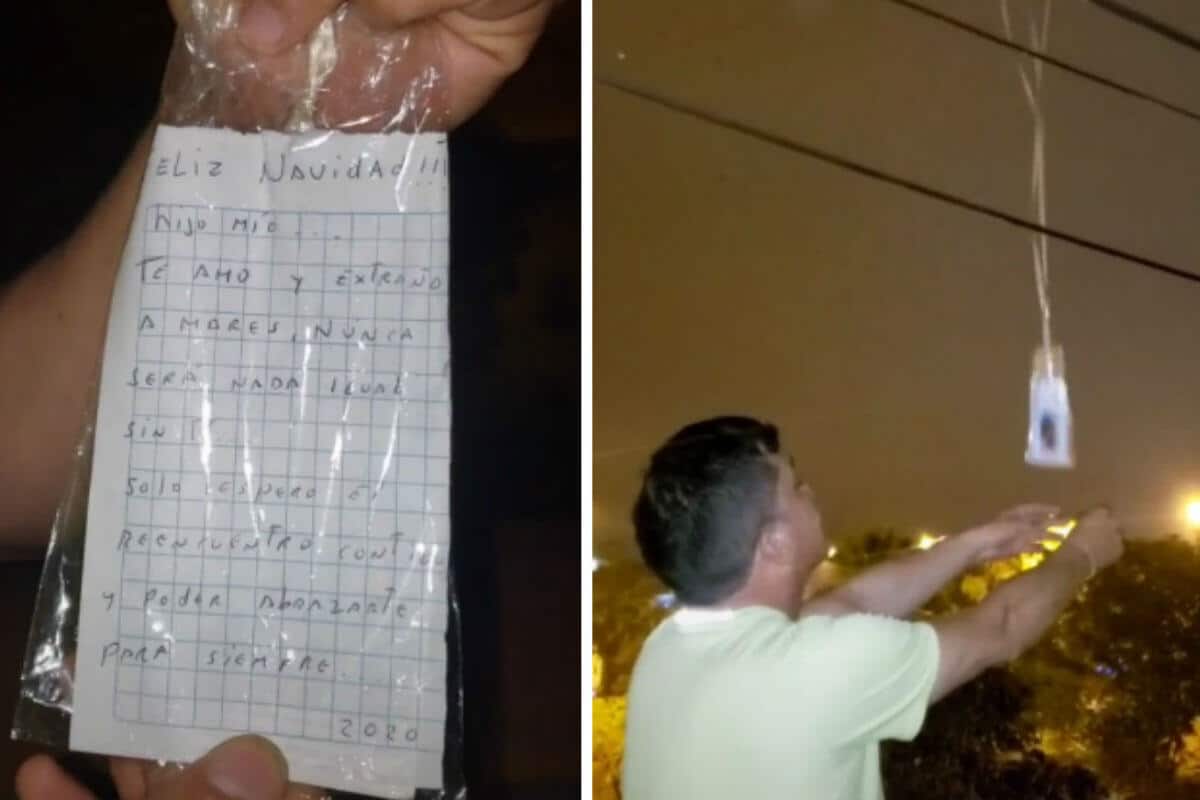 FELIZ NAVIDAD!!!
hijo mío....
TE AMO y EXTRAÑO
A MARES, NUNCA
SERÁ NADA IGUAL
SIN TÍ
SOLO ESPERO EL
REENCUENTRO CONTIGO
y PODER ABRAZARTE
PARA SIEMPRE.
2020